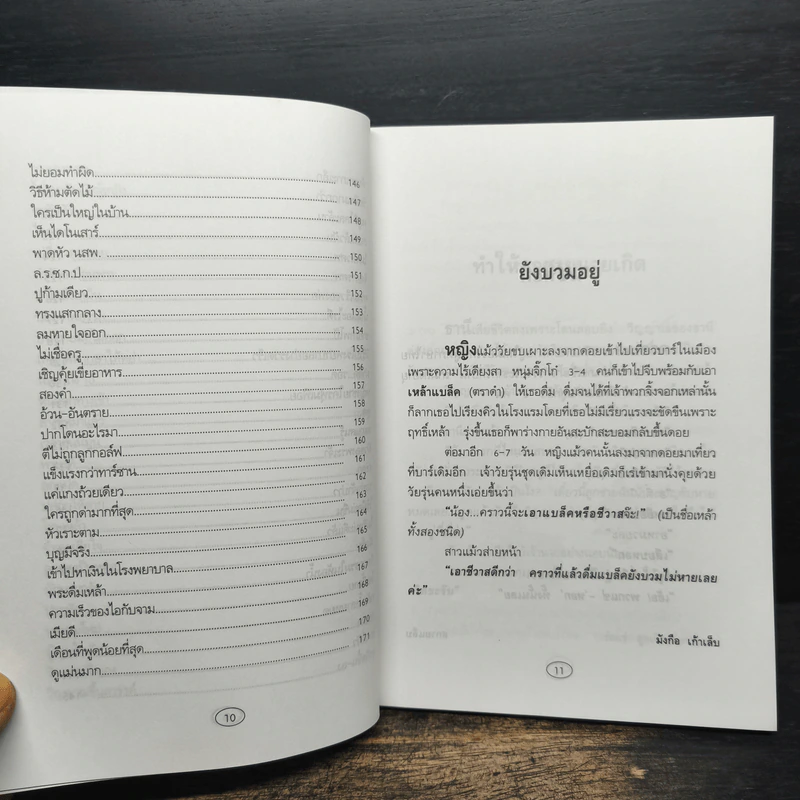 ไม่ยอมทำผิด 146
วิธีห้ามตัดไม้ 147
ใครเป็นใหญ่ในบ้าน 148
เห็นไดโนเสาร์ 149
พาดหัว นสพ. 150
ล.ร.ซ.ก.ป 151
ปูก้ามเดียว 152
ทรงแสกกลาง 153
ลมหายใจออก 154
ไม่เชื่อครู 155
เชิญคุ้ยเขี่ยอาหาร 156
สองคำ 157
อ้วน-อันตราย 158
ปากโดนอะไรมา 159
ตีไม่ถูกลูกกอล์ฟ 160
แข็งแรงกว่าทาร์ซาน 161
แค่แกงถ้วยเดียว 162
ใครถูกด่ามากที่สุด 163
หัวเราะตาม 164
บุญมีจริง 165
เข้าไปหาเงินในโรงพยาบาล 166
พระดื่มเหล้า 167
ความเร็วของไอกับจาม 168
เมียดี 169
เดือนที่พูดน้อยที่สุด 170
ดูแม่นมาก 171
10
ยังบวมอยู่
หญิงแม้ววัยขบเผาะลงจากดอยเข้าไปเที่ยวบาร์ในเมือง
เพราะความไร้เดียงสา หนุ่มจิ๊กโก๋ 3-4 คนก็เข้าไปจีบพร้อมกับเอา
เหล้าแบล็ค (ตราดำ) ให้เธอดื่ม ดื่มจนได้ที่เจ้าพวกจิ้งจอกเหล่านั้น
ก็ลากเธอไปเรียงคิวในโรงแรมโดยที่เธอไม่มีเรี่ยวแรงจะขัดขืนเพราะ
ฤทธิ์เหล้า รุ่งขึ้นเธอก็พาร่างกายอันสะบักสะบอมกลับขึ้นดอย
ต่อมาอีก 6-7 วัน หญิงแม้วคนนั้นลงมาจากดอยมาเที่ยว
ที่บาร์เดิมอีก เจ้าวัยรุ่นชุดเดิมเห็นเหยื่อเดิมก็เร่เข้ามานั่งคุยด้วย
วัยรุ่นคนหนึ่งเอ่ยขึ้นว่า
"น้อง...คราวนี้จะเอาแบล็คหรือชีวาสจ๊ะ!" (เป็นชื่อเหล้า
ทั้งสองชนิด)
สาวแม้วส่ายหน้า
"เอาชีวาสดีกว่า คราวที่แล้วดื่มแบล็คยังบวมไม่หายเลย
ค่ะ"
มังกือ เก้าเล็บ
11